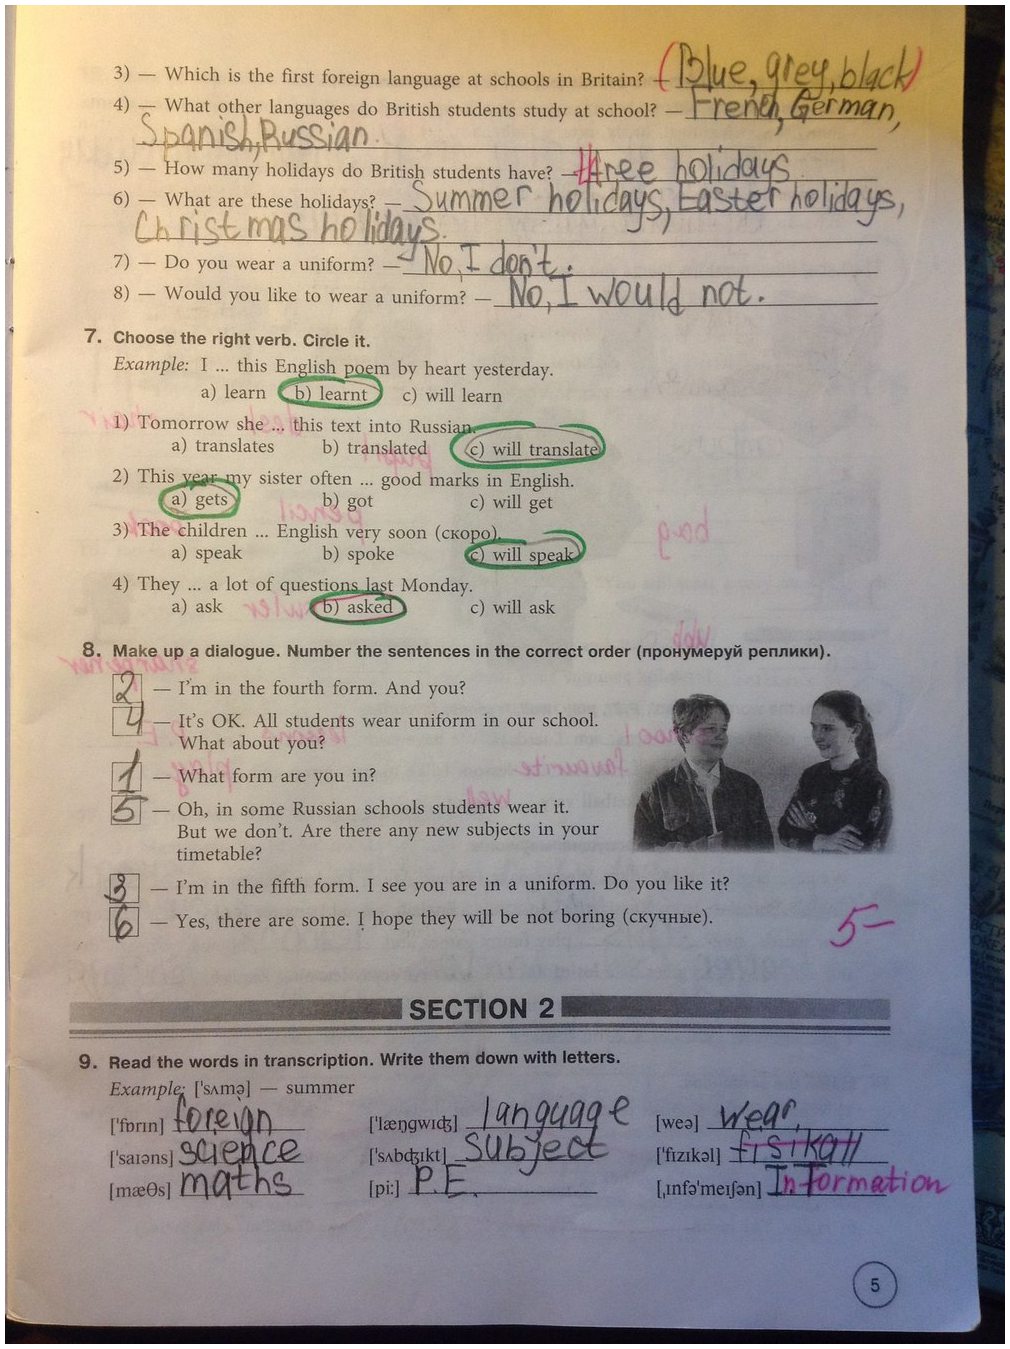 3) — Which is the first foreign language at schools in Britain? — (Blue, grey, black)
4) — What other languages do British students study at school? — French, German,
Spanish, Russian.
5) — How many holidays do British students have? — three holidays
6) — What are these holidays? — Summer holidays, Easter holidays,
Christmas holidays.
7) — Do you wear a uniform? — No, I don't.
8) — Would you like to wear a uniform? — No, I would not.
7. Choose the right verb. Circle it.
Example: I ... this English poem by heart yesterday.
a) learn b) learnt c) will learn
1) Tomorrow she ... this text into Russian.
a) translates b) translated c) will translate
2) This year my sister often ... good marks in English.
a) gets b) got c) will get
3) The children ... English very soon (скоро).
a) speak b) spoke c) will speak
4) They ... a lot of questions last Monday.
a) ask b) asked c) will ask
8. Make up a dialogue. Number the sentences in the correct order (пронумеруй реплики).
2 — I'm in the fourth form. And you?
4 — It's OK. All students wear uniform in our school.
What about you?
1 — What form are you in?
5 — Oh, in some Russian schools students wear it.
But we don't. Are there any new subjects in your
timetable?
3 — I'm in the fifth form. I see you are in a uniform. Do you like it?
6 — Yes, there are some. I hope they will be not boring (скучные).
5-
SECTION 2
9. Read the words in transcription. Write them down with letters.
Example: ['sʌmə] — summer
['fɒrɪn] foreign ['læŋgwɪʤ] language [weə] wear
['saɪəns] science ['sʌbʤɪkt] subject ['fɪzɪkəl] fisikall
[mæθs] maths [pi:] P.E. [ˌɪnfə'meɪʃən] Information
5